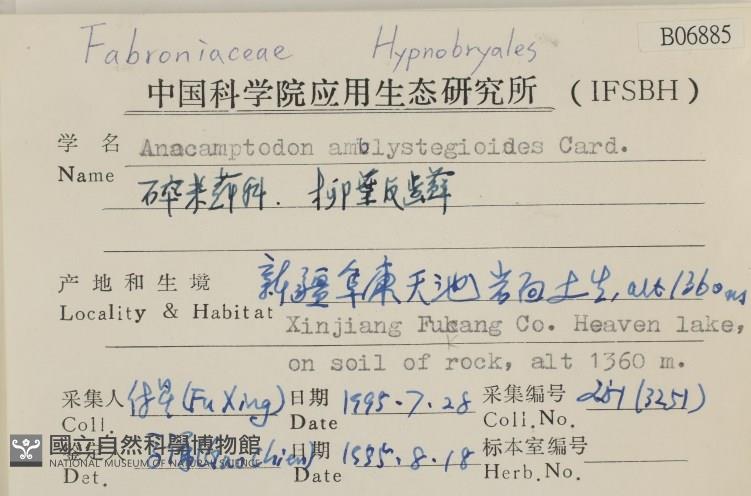 Fabroniaceae Hypnobryales B06885
中国科学院应用生态研究所 (IFSBH)
学名 Anacamptodon amblystegioides Card.
Name 碎米藓科. 柳葉反齿藓
产地和生境 新疆阜康天池岩面土生, alt 1360 m
Locality & Habitat Xinjiang Fukang Co. Heaven lake,
on soil of rock, alt 1360 m.
采集人 (Fu Xing) 日期 1995.7.28 采集编号 251 (3251)
Coll. Date Coll.No.
國立自然科學博物館
NATIONAL MUSEUM OF NATURAL SCIENCE
鉴定人 日期 1995.8.18 标本室编号
Det. Date Herb.No.